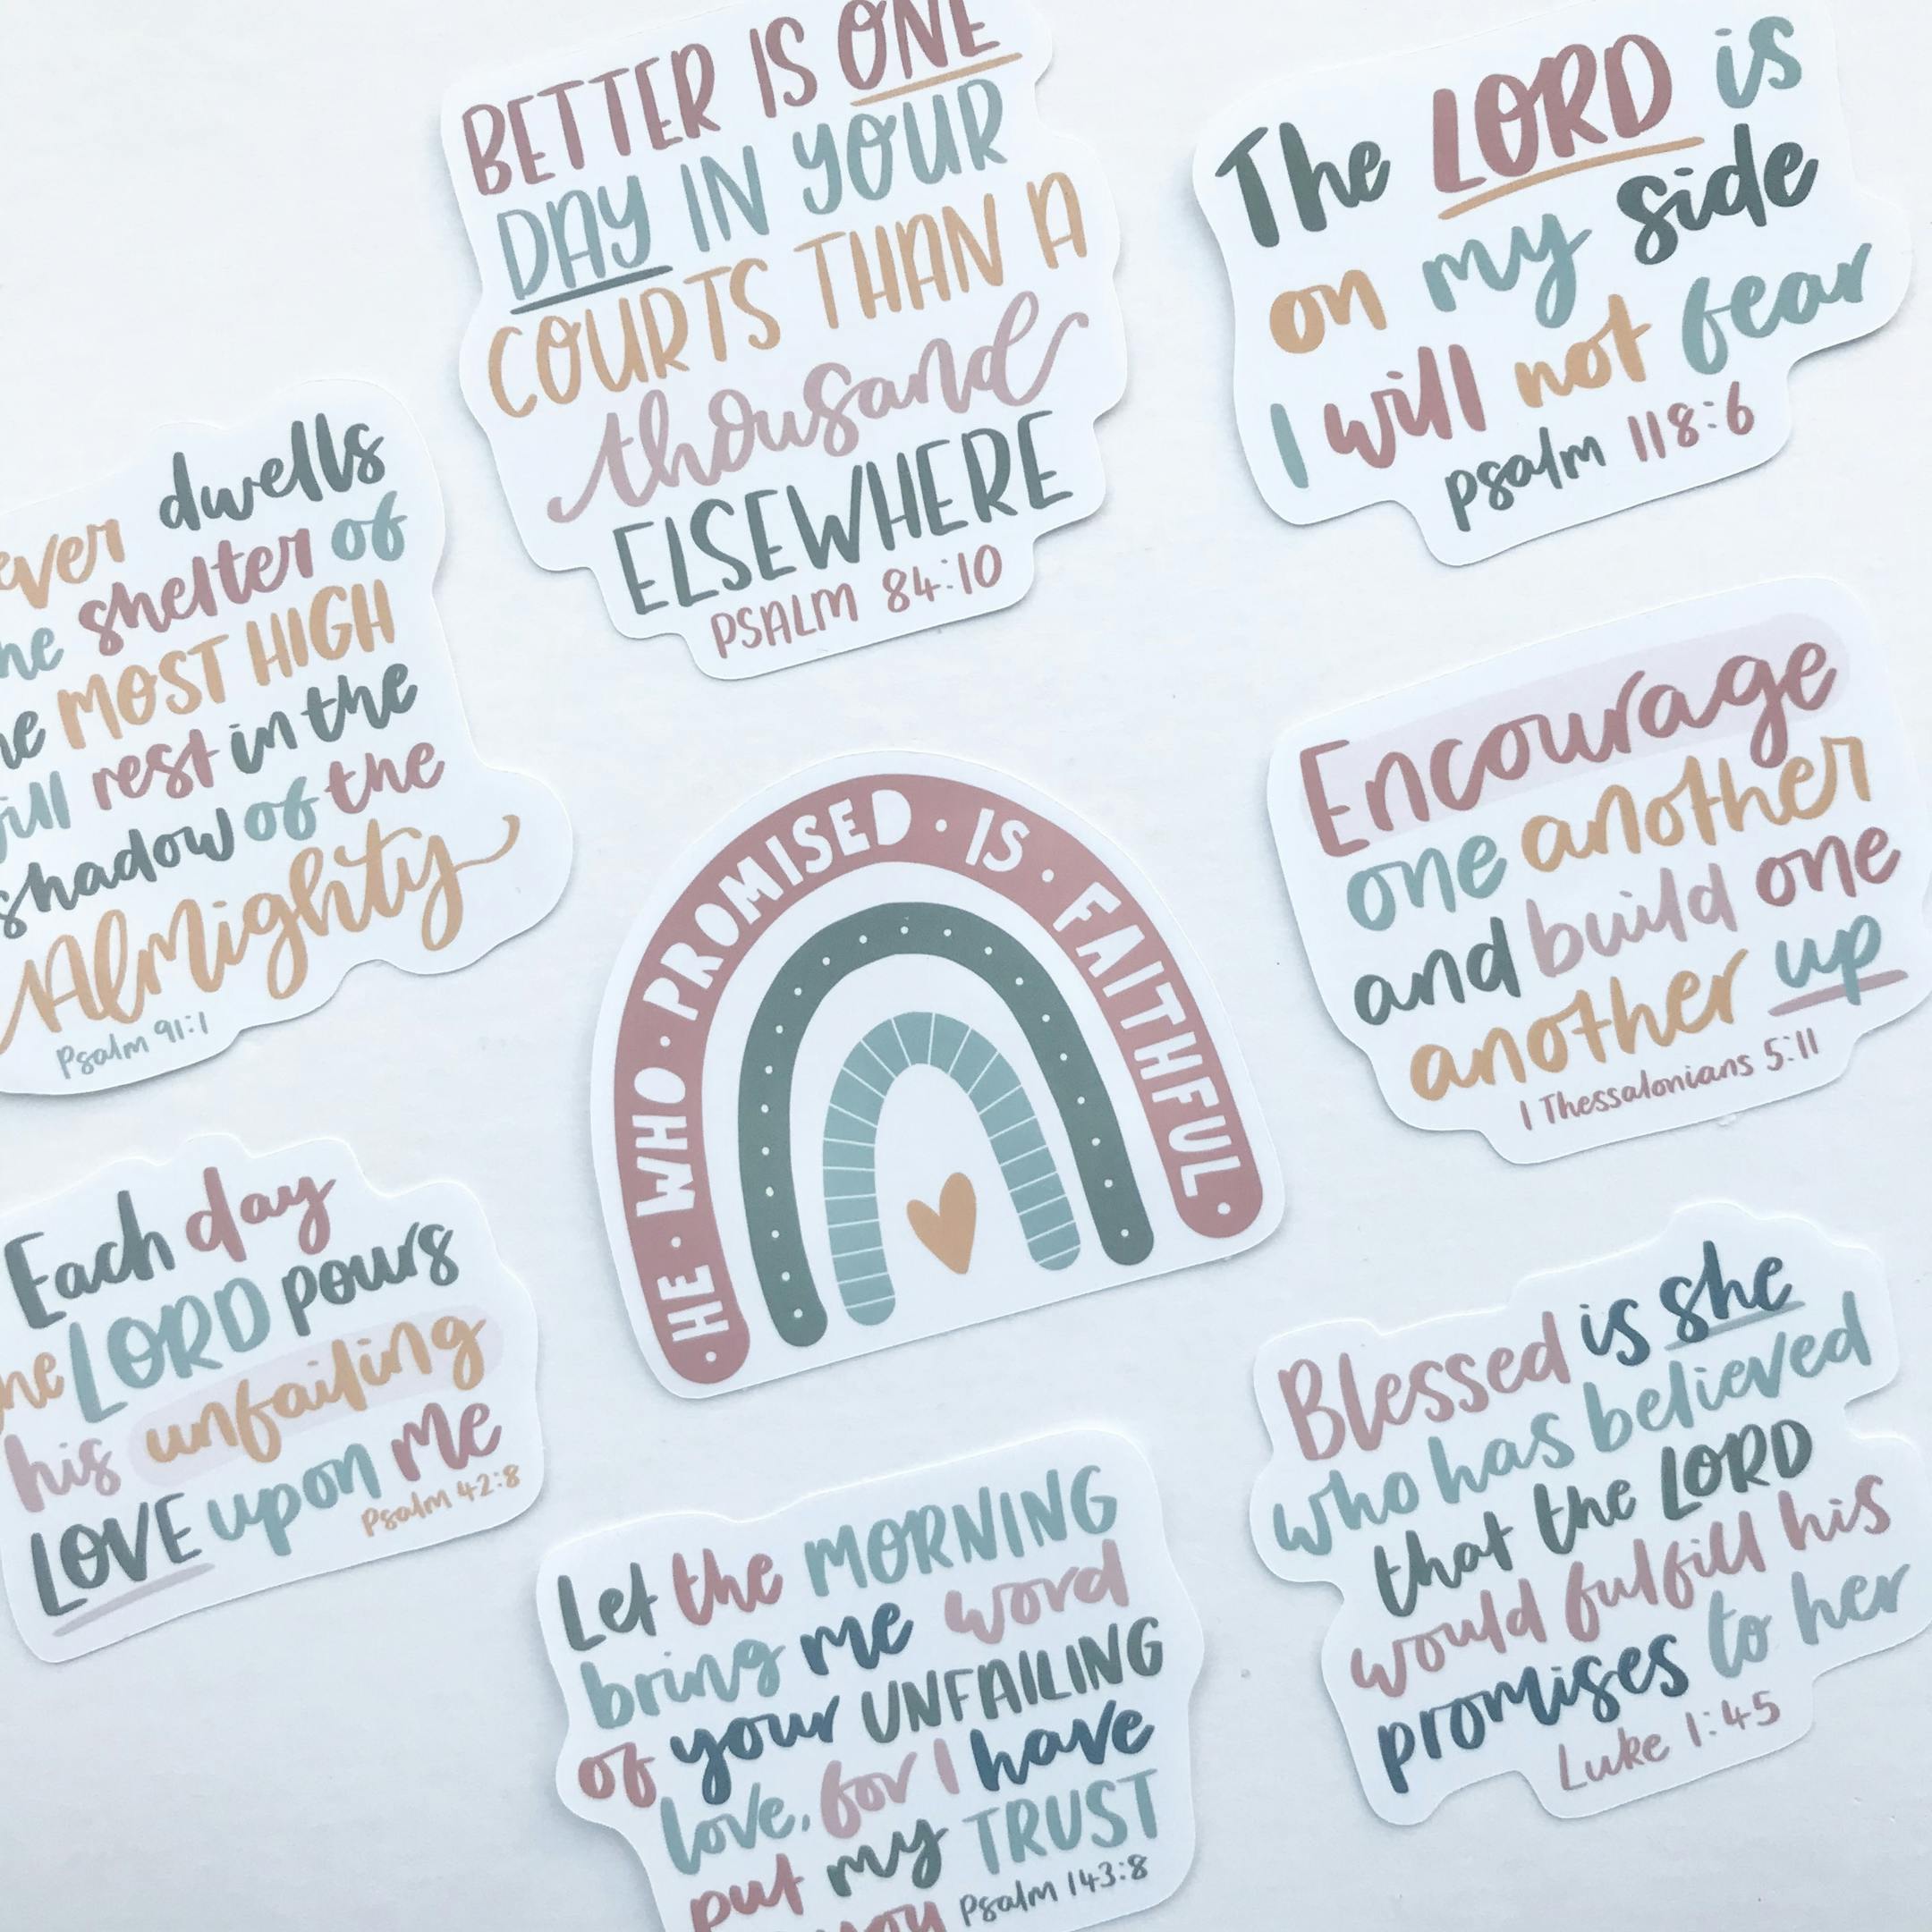 BETTER IS ONE
DAY IN YOUR
COURTS THAN A
thousand
ELSEWHERE
PSALM 84:10
The LORD is
on my side
I will not fear
psalm 118:6
ever dwells
he shelter of
he MOST HIGH
ill rest in the
shadow of the
Almighty
Psalm 91:1
HE · WHO · PROMISED · IS · FAITHFUL
Encourage
one another
and build one
another up
1 Thessalonians 5:11
Each day
he LORD pours
his unfailing
LOVE upon me
Psalm 42:8
Let the MORNING
bring me word
of your UNFAILING
love, for I have
put my TRUST
you Psalm 143:8
Blessed is she
who has believed
that the LORD
would fulfill his
promises to her
Luke 1:45